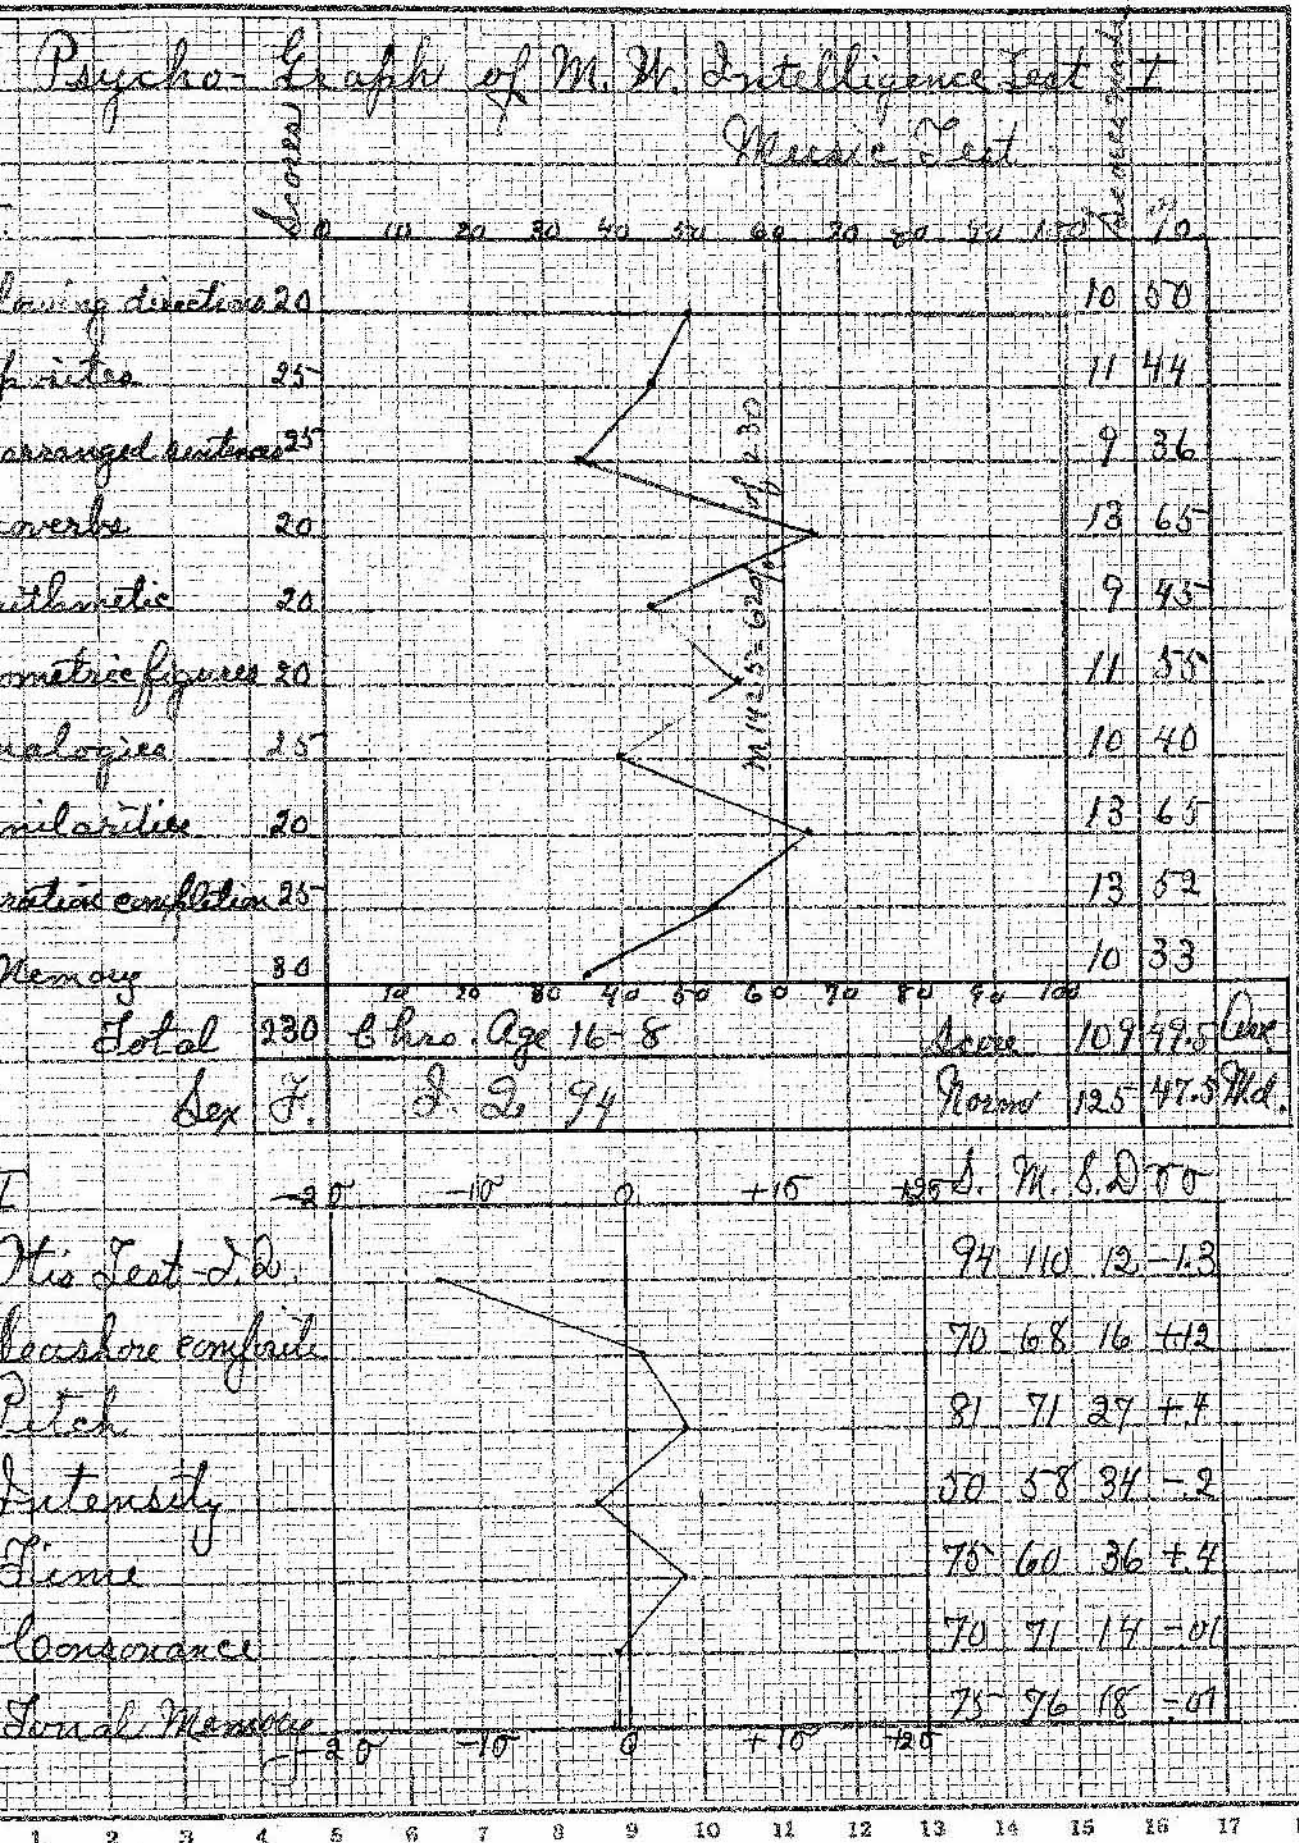 Psycho-Graph of M. W. Intelligence Test I
Music Test
Scores 0 10 20 30 40 50 60 70 80 90 100 Scores made %
lowing directions 20 10 50
posites 25 11 44
arranged sentences 25 9 36
overbs 20 13 65
ithmetic 20 9 45
ometric figures 20 11 55
alogies 25 10 40
milarities 20 13 65
ration completion 25 13 52
Memory 30 10 33
M 142.5 = 62% of 230
10 20 30 40 50 60 70 80 90 100
Total 230 Chro. Age 16-8 Score 109 49.5 Ave.
Sex F. I. Q. 94 Norm 125 47.5 Md.
I -2σ -1σ 0 +1σ +2σ S. M. S.D σ
Mis Test-I.Q. 94 110 12 -1.3
Seashore composite 70 68 16 +.12
Pitch 81 71 27 +.4
Intensity 50 58 34 -.2
Time 75 60 36 +.4
Consonance 70 71 14 -01
Tonal Memory 75 76 18 -.01
-2σ -1σ 0 +1σ +2σ
1 2 3 4 5 6 7 8 9 10 11 12 13 14 15 16 17